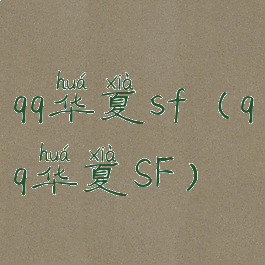 qq华夏sf（q
q华夏SF）